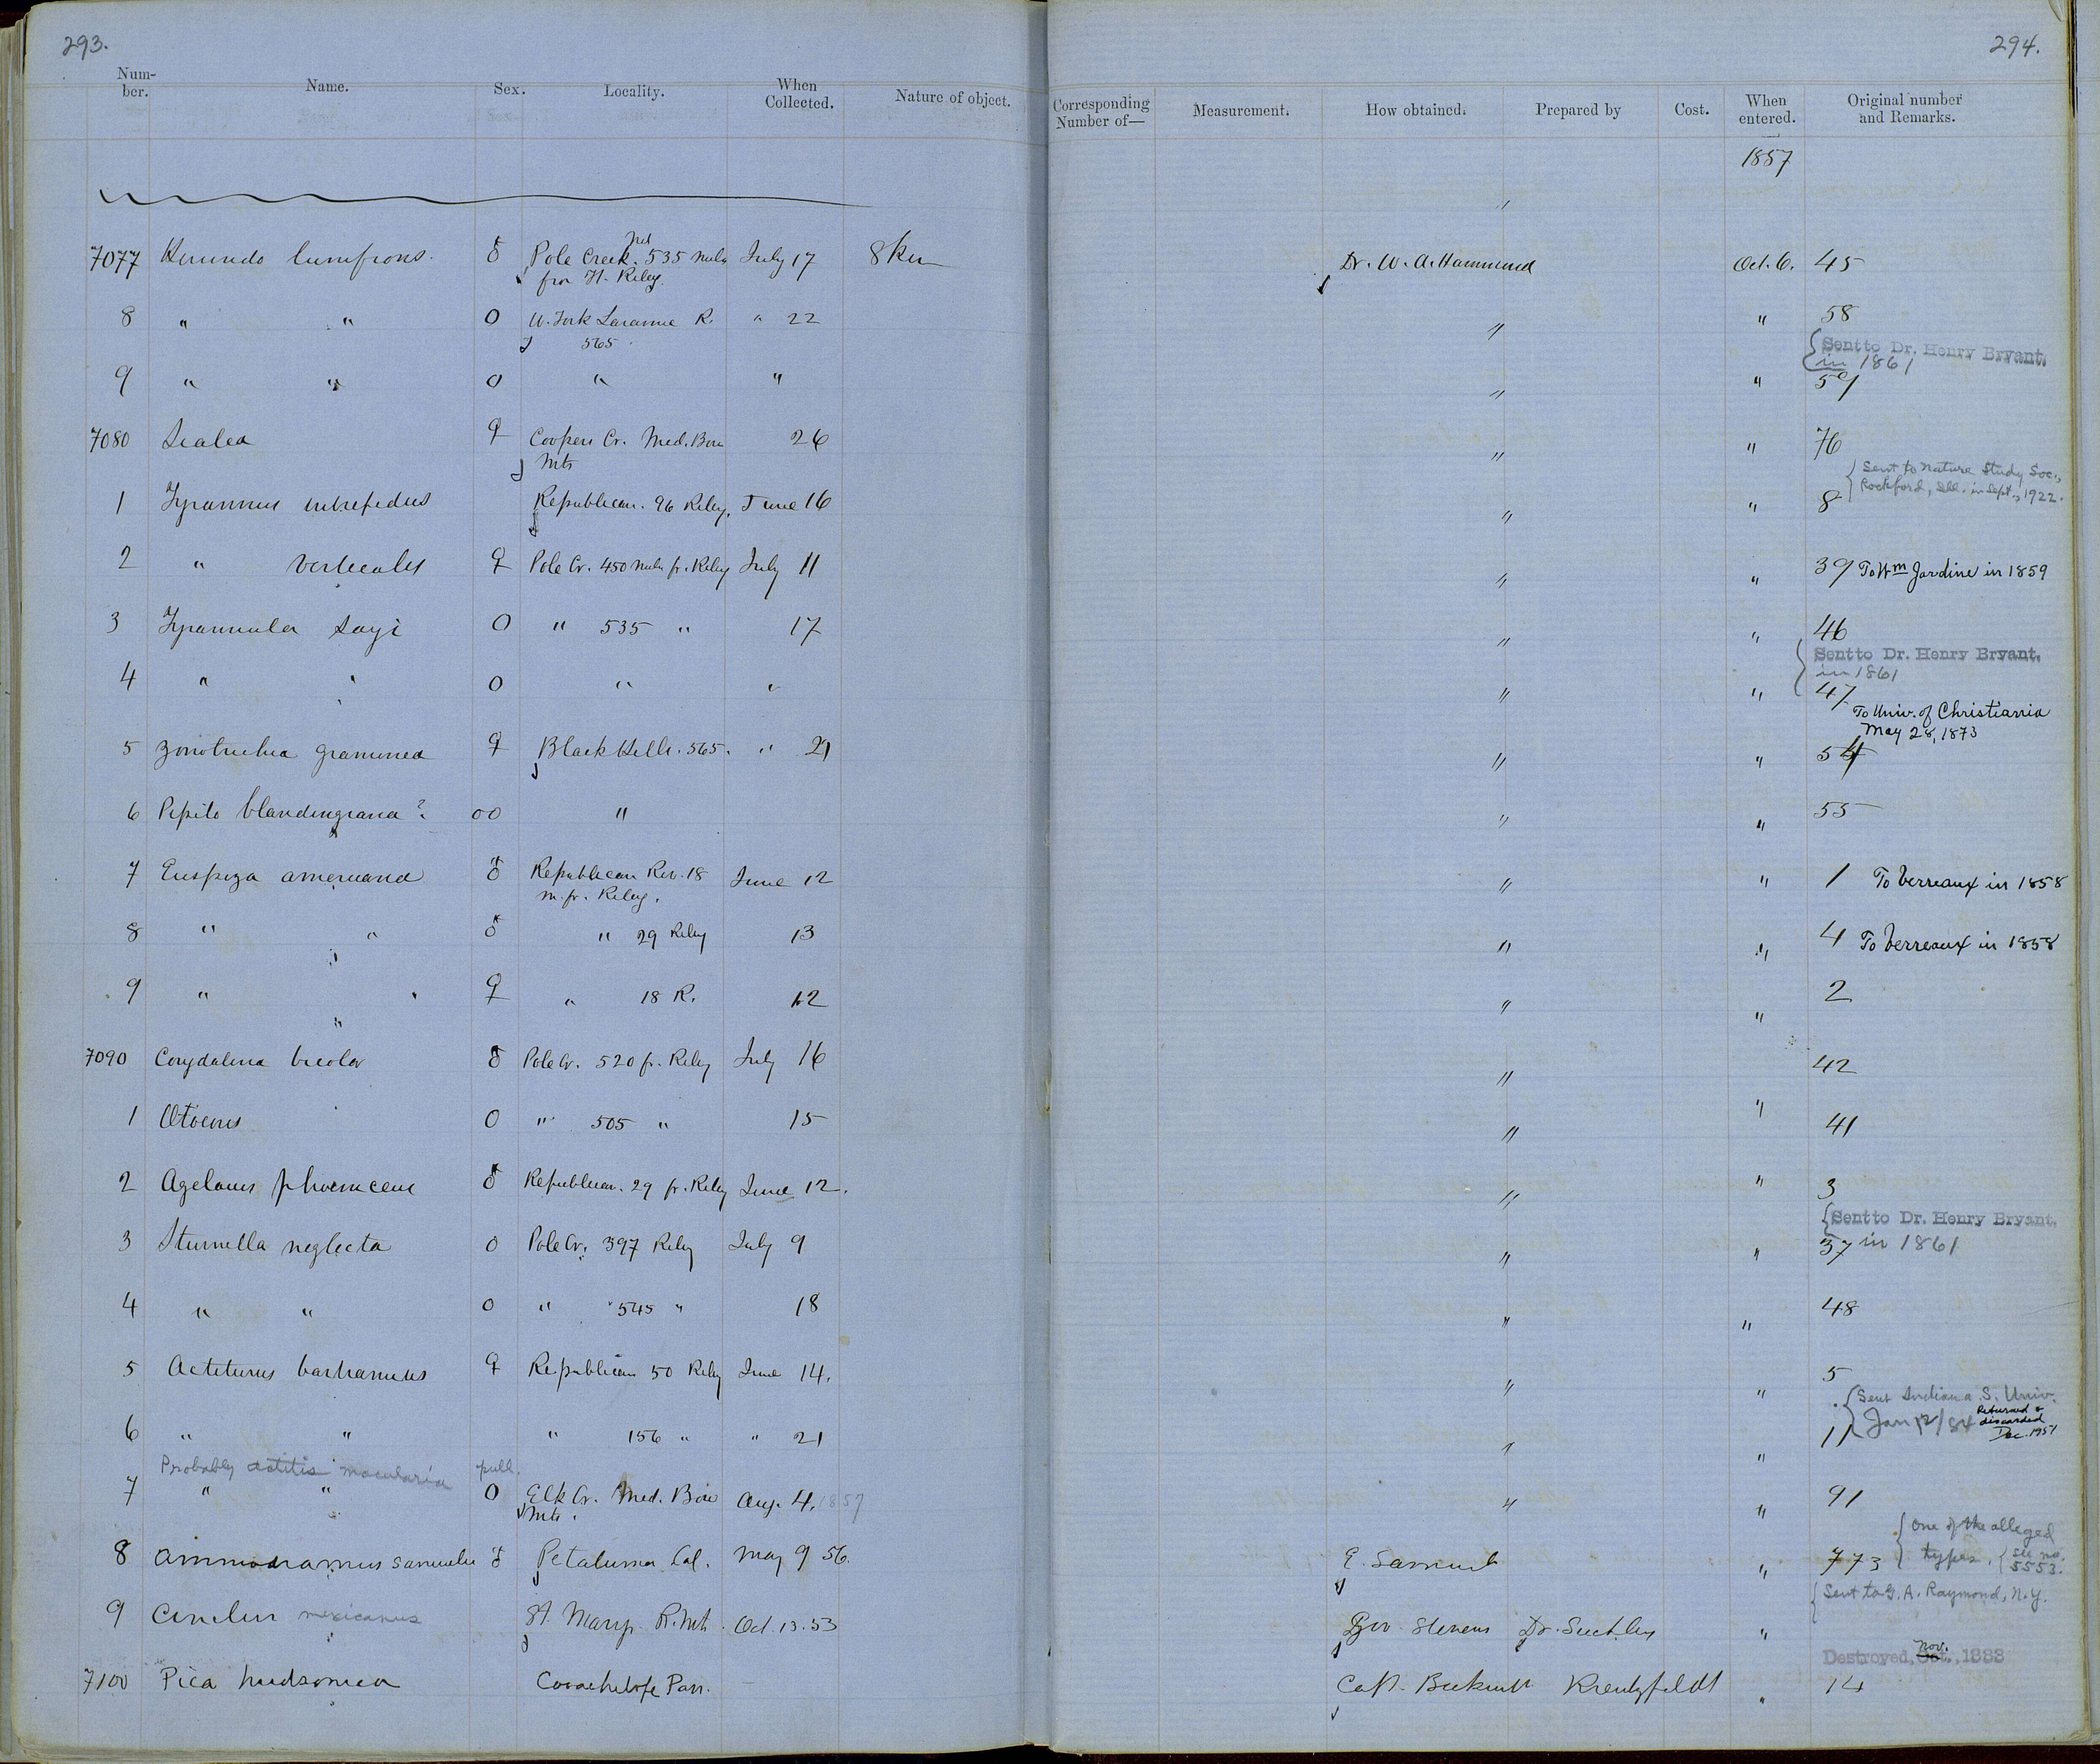 293.
294.
Num-ber. Name. Sex. Locality. When Collected. Nature of object. Corresponding Number of— Measurement. How obtained. Prepared by Cost. When entered. Original number and Remarks.
1857
"
7077 Hirundo lunifrons. ♂ Pole Creek. 535 miles July 17 8 Dr. W. A. Hammond Oct. 6. 45
from Ft. Riley.
8 " " O W. Fork Laramie R. " 22 " " 58
565
{ Sent to Dr. Henry Bryant.
in 1861
9 " " O " " " " 59
7080 Sialia ♀ Coopers Cr. Med. Bow 26 " " 76
Mts
{ Sent to Nature Study Soc.,
Rockford, Ill. in Sept., 1922.
1 Tyrannus intrepidus Republican. 96 Riley. June 16 " " 8
2 " verticalis ♀ Pole Cr. 450 miles fr. Riley July 11 " " 39 To Wm Jardine in 1859
3 Tyrannula sayi O " 535 " 17 " " 46
{ Sent to Dr. Henry Bryant.
in 1861
4 " " O " " " " 47
To Univ. of Christiania
May 28, 1873
5 Zonotrichia graminea ♀ Black Hills. 565. " 21 " " 54
6 Pipilo blandingiana? OO " " " 55
7 Euspiza americana ♂ Republican Riv. 18 June 12 " " 1 To Verreaux in 1858
m. fr. Riley.
8 " " ♂ " 29 Riley 13 " " 4 To Verreaux in 1858
9 " " ♀ " 18 R. 12 " " 2
7090 Corydalina bicolor ♂ Pole Cr. 520 fr. Riley July 16 " 42
1 Otocoris O " 505 " 15 " " 41
2 Agelaius phoeniceus ♂ Republican. 29 fr. Riley June 12. " " 3
{ Sent to Dr. Henry Bryant.
3 Sturnella neglecta O Pole Cr. 397 Riley July 9 " " 37 in 1861
4 " " O " 545 " 18 " " 48
5 Actiturus bartramius ♀ Republican 50 Riley June 14. " " 5
{ Sent Indiana S. Univ.
Jan 12/84 Returned & discarded Dec. 1951
6 " " " 156 " " 21 " " 11
Probably actitis macularia pull.
7 " " O Elk Cr. Med. Bow Aug. 4. 1857 " " 91
Mts.
{ One of the alleged
types. { See no. 5553.
8 Ammodramus samuelis ♂ Petaluma Cal. May 9 56. E. Samuels " 773
{ Sent to G. A. Raymond, N.Y.
9 Cinclus mexicanus St. Marys R. Mts. Oct. 13. 53 Gov. Stevens Dr. Suckley "
Destroyed, Oct. Nov. 1888
7100 Pica hudsonica Coochetope Pass. Capt. Beckwith Kreutzfeldt " 14